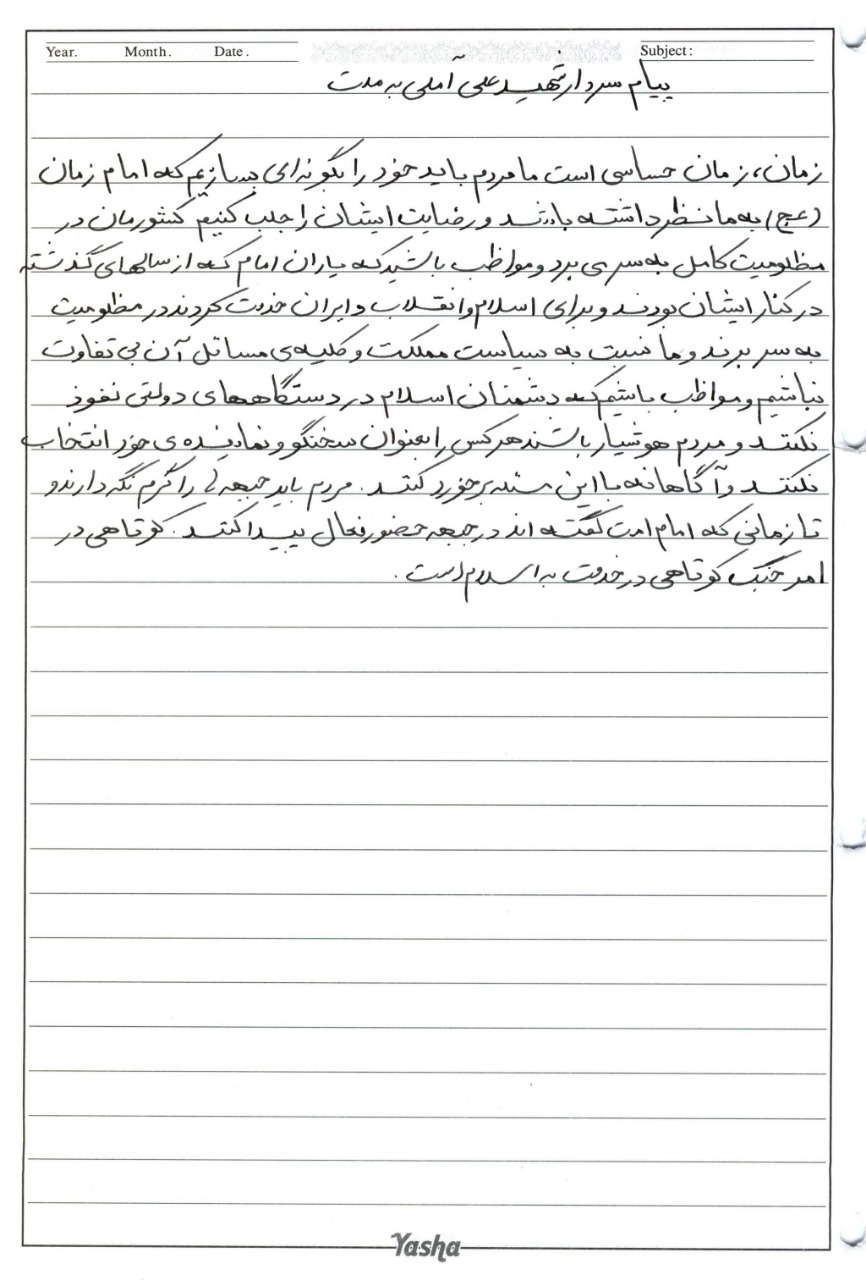 Year. Month. Date. Subject:
پیام سردار شهید علی آملی به ملت
زمان، زمان حساسی است ما مردم باید خود را بگونه‌ای بسازیم که امام زمان
(عج) به ما نظر داشته باشند و رضایت ایشان را جلب کنیم کشورمان در
مظلومیت کامل به سر می برد و مواظب باشید که یاران امام که از سالهای گذشته
در کنار ایشان بودند و برای اسلام و انقلاب و ایران خدمت کردند در مظلومیت
به سر برند و ما نسبت به سیاست مملکت و کلیه‌ی مسائل آن بی تفاوت
نباشیم و مواظب باشیم که دشمنان اسلام در دستگاههای دولتی نفوذ
نکنند و مردم هوشیار باشند هر کس را بعنوان سخنگو و نماینده ی خود انتخاب
نکنند و آگاهانه با این مسئله برخورد کنند. مردم باید جبهه را گرم نگه دارند و
تا زمانی که امام امت گفته اند در جبهه حضور فعال پیدا کنند. کوتاهی در
امر جنگ کوتاهی در خدمت به اسلام است.
Yasha